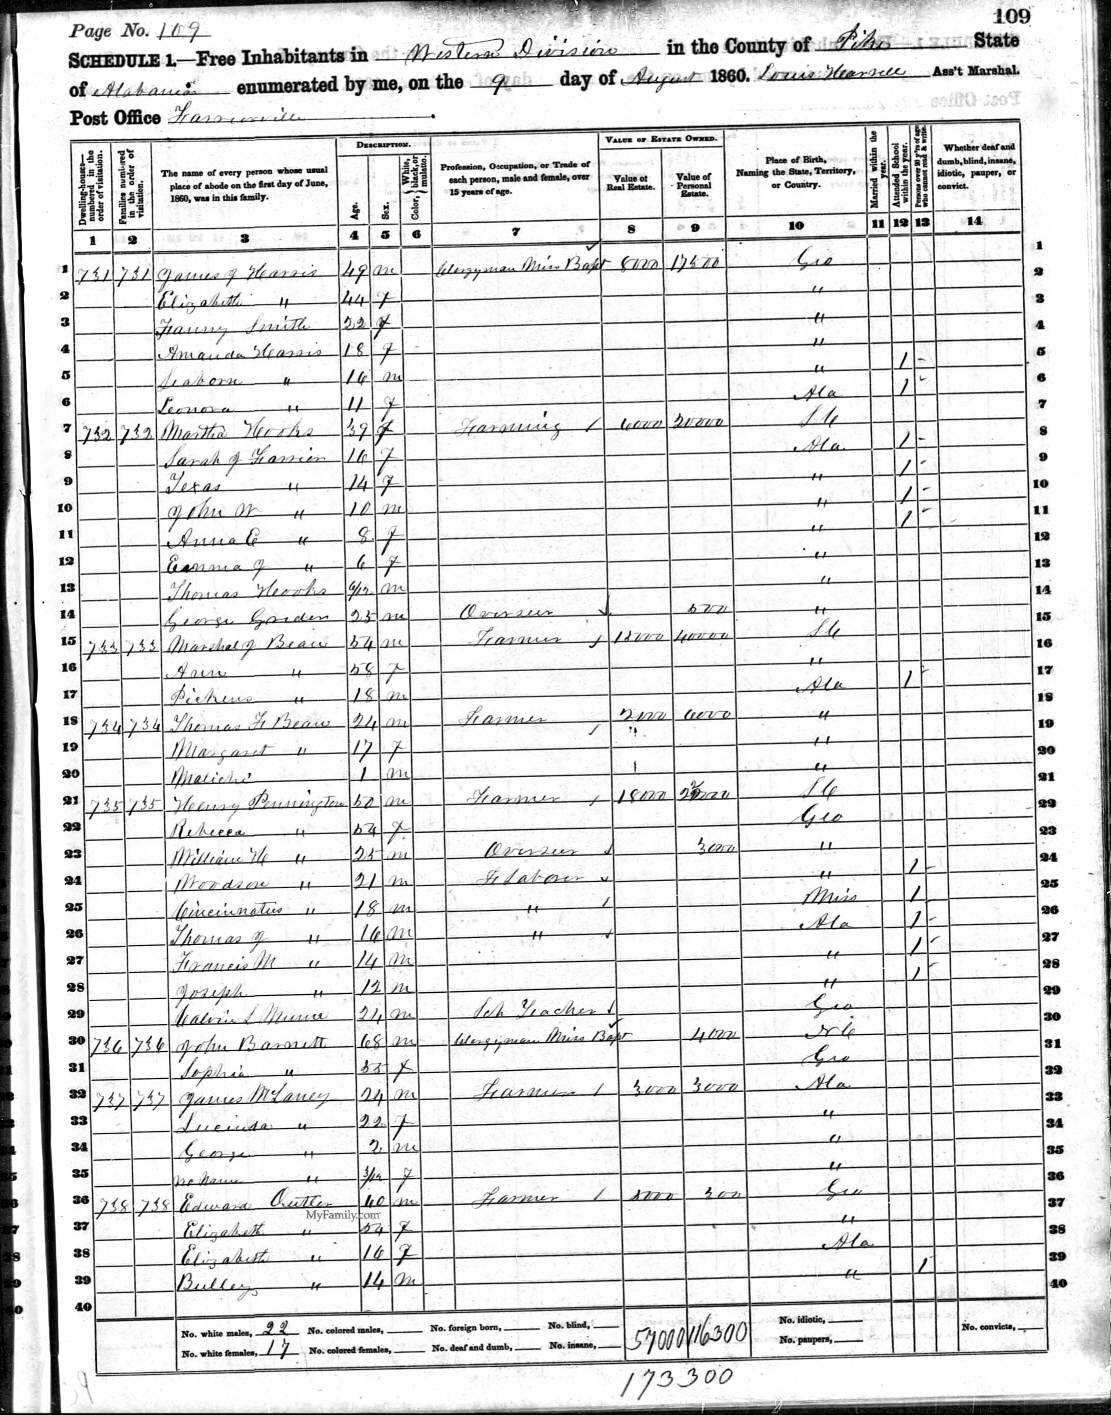 109
Page No. 109
SCHEDULE 1.—Free Inhabitants in Western Division in the County of Pike State
of Alabama enumerated by me, on the 9 day of August 1860. Louis Ass't Marshal.
Post Office Farriorville
Dwelling-houses—numbered in the order of visitation.
Families numbered in the order of visitation.
The name of every person whose usual place of abode on the first day of June, 1860, was in this family.
DESCRIPTION.
Age.
Sex.
Color, White, black, or mulatto.
Profession, Occupation, or Trade of each person, male and female, over 15 years of age.
VALUE OF ESTATE OWNED.
Value of Real Estate.
Value of Personal Estate.
Place of Birth, Naming the State, Territory, or Country.
Married within the year.
Attended School within the year.
Persons over 20 y'rs of age who cannot read & write.
Whether deaf and dumb, blind, insane, idiotic, pauper, or convict.
1 2 3 4 5 6 7 8 9 10 11 12 13 14
1 731 731 James J Harris 49 m Clergyman Miss Bapt 8000 17500 Geo 1
2 Elizabeth " 44 f " 2
3 Fanny Smith 22 f " 3
4 Amanda Harris 18 f " 4
5 Seaborn " 16 m " 1 5
6 Leonora " 11 f Ala 1 6
7 732 732 Martha Hooks 39 f Farming 6000 20000 SC 7
8 Sarah J Farrior 16 f Ala 1 8
9 Texas " 14 f " 1 9
10 John W " 10 m " 1 10
11 Anna E " 8 f " 1 11
12 Emma J " 6 f " 12
13 Thomas Hooks 6/12 m " 13
14 George 25 m Overseer 500 " 14
15 733 733 Marshal J Bean 54 m Farmer 40000 SC 15
16 Ann " 58 f " 16
17 Pickens " 18 m Ala 1 17
18 734 734 Thomas F Bean 24 m Farmer 2000 6000 " 18
19 Margaret " 17 f " 19
20 Malichi 1 m " 20
21 735 735 Henry Pennington 50 m Farmer 18000 SC 21
22 Rebecca " 54 f Geo 22
23 William H " 25 m Overseer 3000 " 23
24 Woodson " 21 m F Laborer " 1 24
25 Cincinnatus " 18 m " Miss 1 25
26 Thomas J " 16 m " Ala 1 26
27 Francis M " 14 m " 1 27
28 Joseph " 12 m " 1 28
29 Calvin L 24 m Sch Teacher Geo 29
30 736 736 John Barnett 68 m Clergyman Miss Bapt 4000 NC 30
31 Sophia " 55 f Geo 31
32 737 737 James McLaney 24 m Farmer 3000 3000 Ala 32
33 Lucinda " 22 f " 33
34 George " 2 m " 34
35 no name " 3/12 f " 35
36 738 738 Edward 60 m Farmer 300 Geo 36
37 Elizabeth " 54 f " 37
38 Elizabeth " 16 f Ala 38
39 " 14 m " 1 39
40 40
MyFamily.com
No. white males, 22 No. colored males, No. foreign born, No. blind, 57000 116300 No. idiotic, No. convicts,
No. white females, 17 No. colored females, No. deaf and dumb, No. insane, No. paupers,
173300